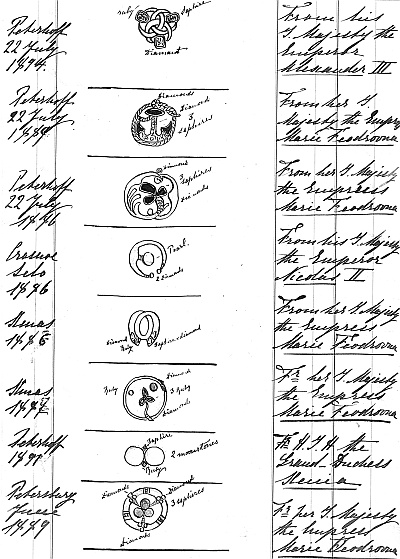 Peterhoff
22 July
1894.
ruby
Sapphire
Diamant
From his
I. Majesty the
Emperor
Alexander III
Peterhoff
22 July
Diamonds
Diamond
3
sapheres
From her I.
Majesty the Empress
Marie Feodrovna
Peterhoff
22 July
1896
diamond
3
sapheres
From her I. Majesty
the Empress
Marie Feodrovna
1886
Pearl.
2 diamonds
From his I. Majesty
the Emperor
Nicolas II
diamond
Ruby
From her I. Majesty
the Empress
Marie Feodrovna
Ruby
diamond
3 Ruby
diamonds
Fr her I. Majesty
the Empress
Marie Feodrovna
Peterhoff
Saphire
2 moonstones
Fr H.I.H. the
Grand Duchess
Xenia
Petersburg
June
1889
Diamonds
Diamonds
3 sapheres
Diamonds
Fr her I. Majesty
the Empress
Marie Feodrovna